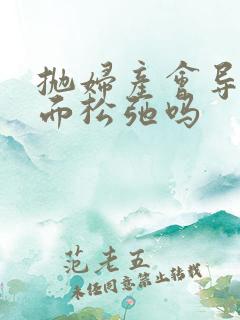 抛婦産會导
而松弛吗
范老五
未经同意禁止转载